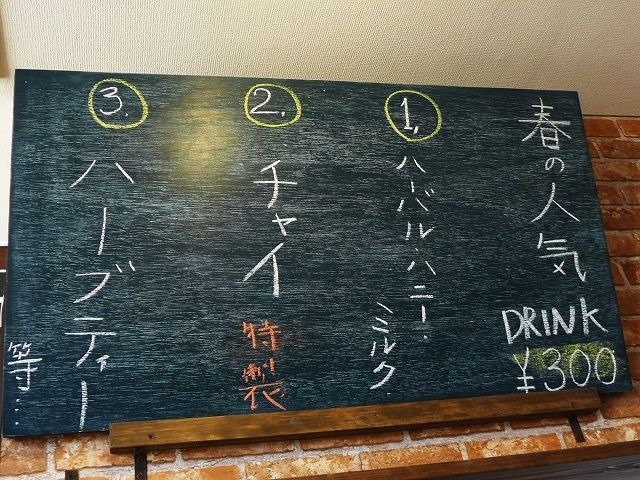 春の人気
DRINK
¥300
1.
ハーバル・ハニー・
ミルク
2.
チャイ
特製
3.
ハーブティー
等…